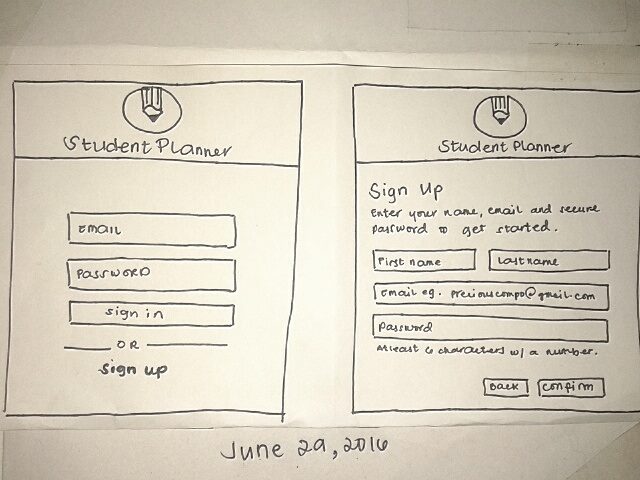 Student Planner
EMAIL
PASSWORD
sign in
OR
sign up
Student Planner
Sign Up
Enter your name, email and secure
password to get started.
First name
Last name
Email eg. preciouscompo@gmail.com
Password
Atleast 6 characters w/ a number.
Back
Confirm
June 29, 2016